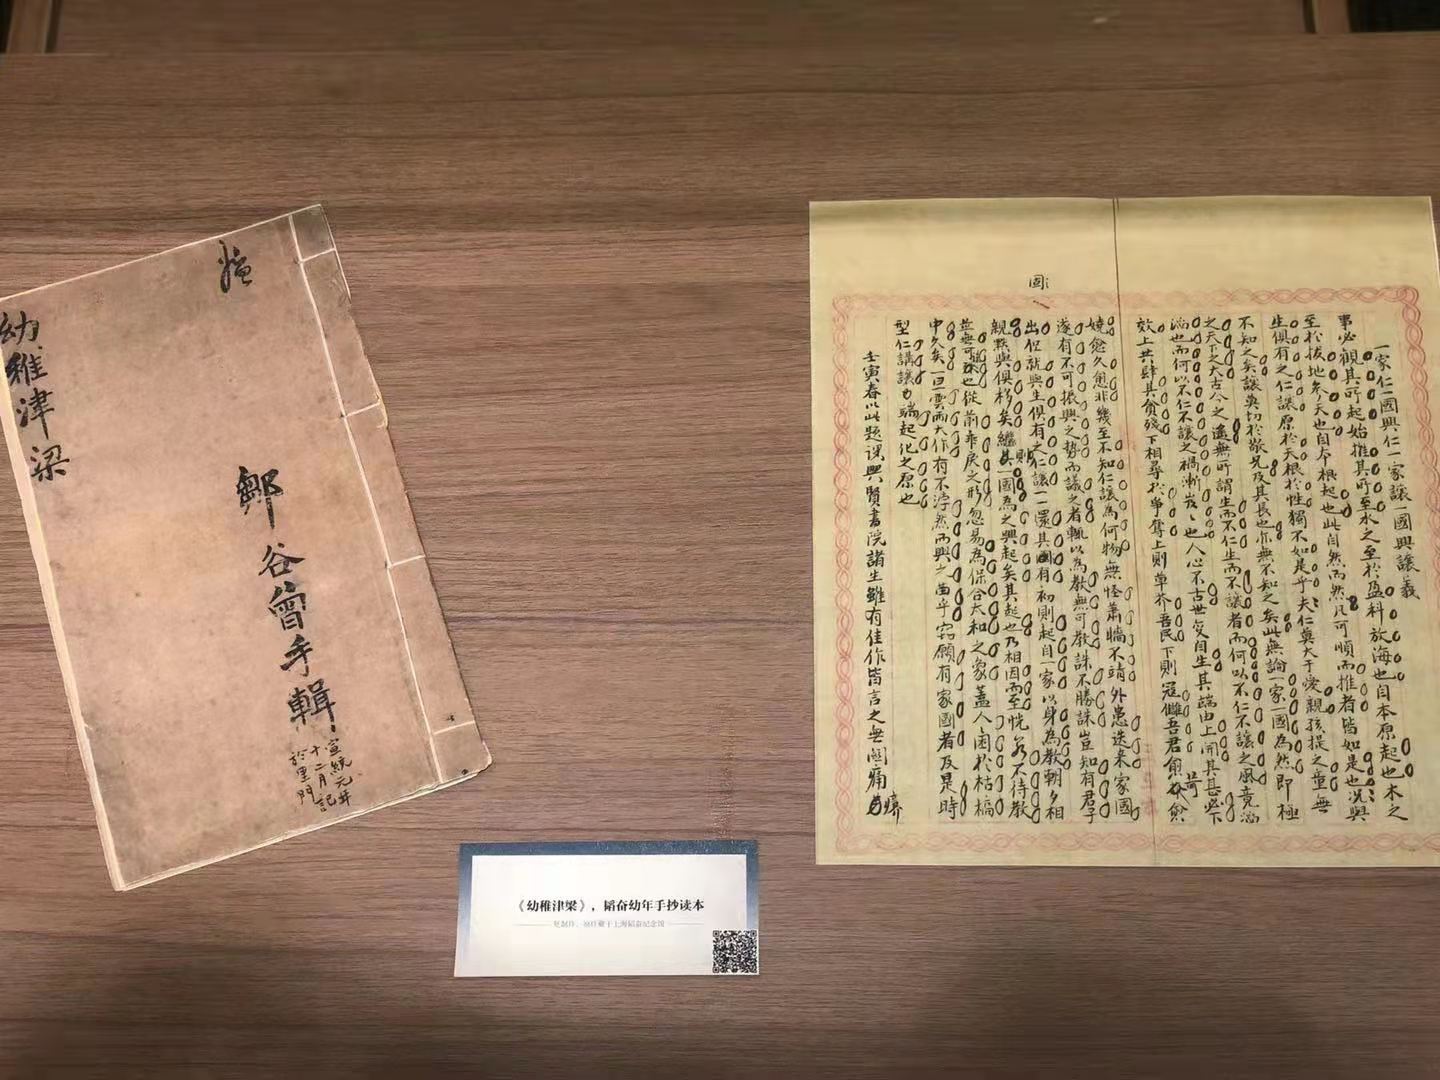 幼稚津梁
鄭谷曾手輯
宣統元年
十二月記
於里門
《幼稚津梁》，韬奋幼年手抄读本
复制件，原件藏于上海韬奋纪念馆
一家仁一國興仁一家讓一國興讓義
事必觀其所起始推其所至水之至於盈科放海也自本原起也木之
至於拔地參天也自本根起也此自然而然凡可順而推者皆如是也況與
生俱有之仁讓原於天根於性獨不如是乎夫仁莫大于愛親孩提之童無
不知之矣讓莫切於敬兄及其長也亦無不知之矣此無論一家一國為然即極
之天下之大古今之遙無所謂生而不仁生而不讓者而何以不仁不讓之風竟滔
滔也而何以不仁不讓之禍漸岌岌也人心不古世變日生其端由上開其甚必下
效上共肆其貪殘下相尋於爭奪上則草芥吾民下則寇讎吾君
愈久愈非幾至不知仁讓為何物無怪蕭牆不靖外患迭來家國
遂有不可振興之勢而議之者輒以為教無可教誅不勝誅豈知有君子
出但就與生俱有之仁讓一一還其固有初則起自一家以身為教朝夕相
親默與俱移矣繼則一國為之興起矣其起也乃相因而至恍若不待教
並無可教也從前乖戾之形忽易為保合太和之象蓋人困於枯槁
中久矣一旦雲雨大作有不浡然而興之苗乎竊願有家國者及是時
型仁講讓為端起化之原也
壬寅春以此題課興賢書院諸生雖有佳作皆言之無關痛癢